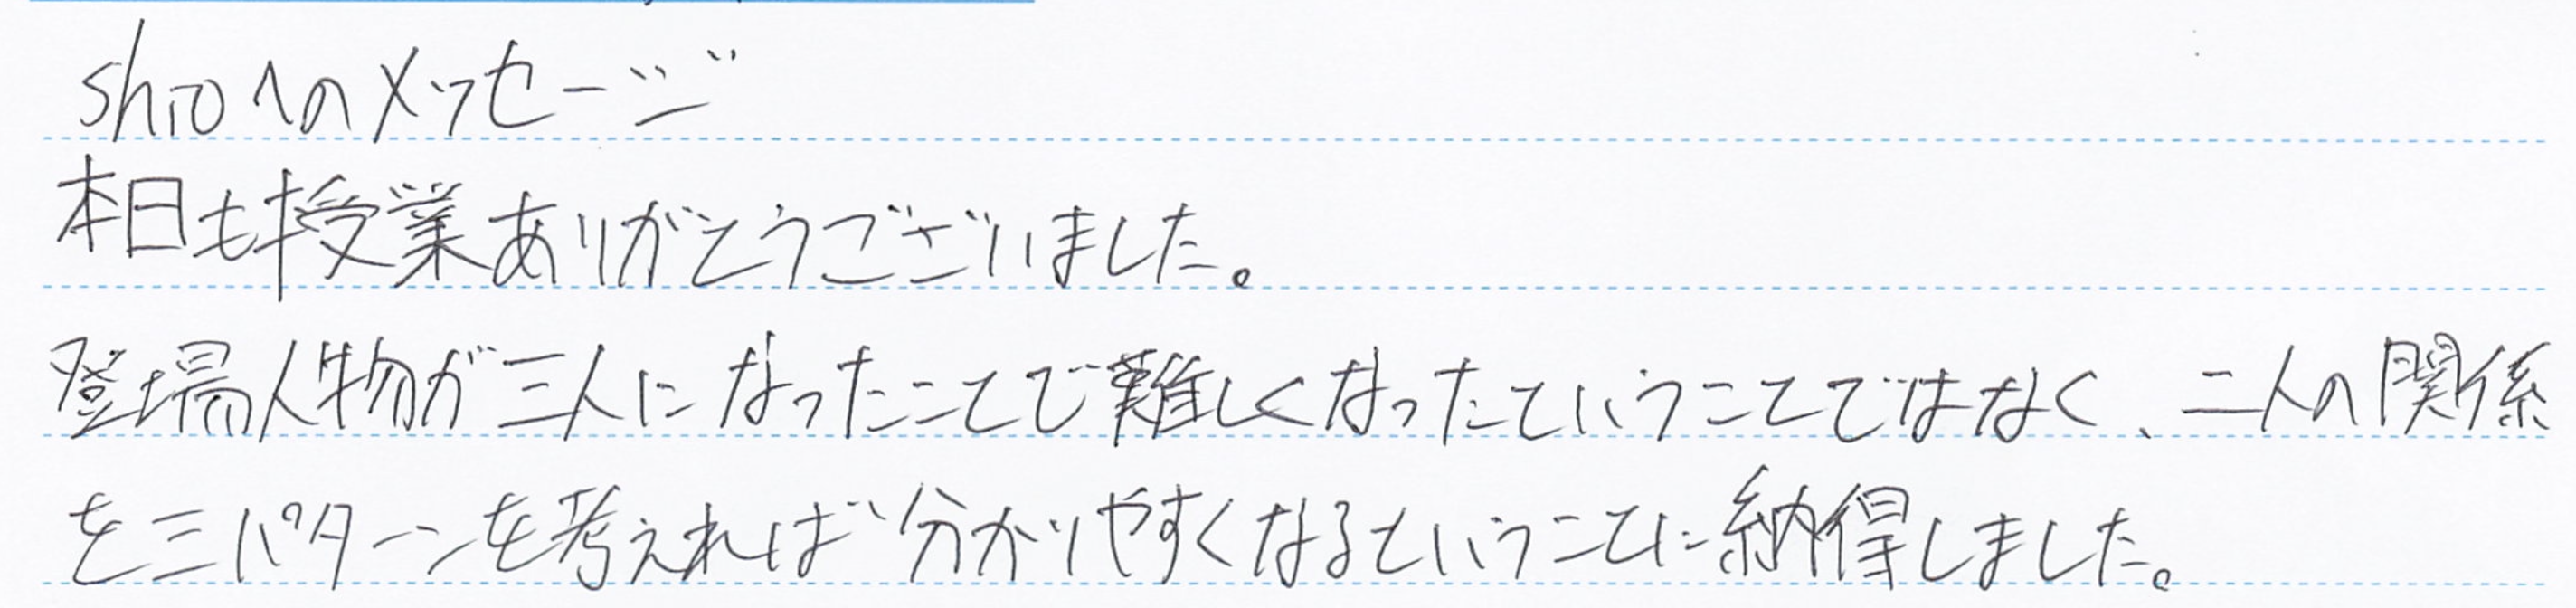 shioへのメッセージ
本日も授業ありがとうございました。
登場人物が三人になったことで難しくなったということではなく、二人の関係
を三パターンを考えれば分かりやすくなるということに納得しました。